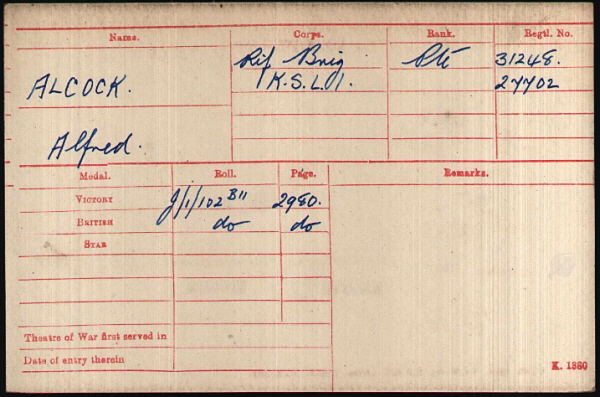 Name. Corps. Rank. Regtl. No.
Rif Brig Pte 31248.
ALCOCK. K.S.L.I. 27702
Alfred.
Medal. Roll. Page. Remarks.
VICTORY J/1/102 B11 2980.
BRITISH do do
STAR
Theatre of War first served in
Date of entry therein
K. 1380